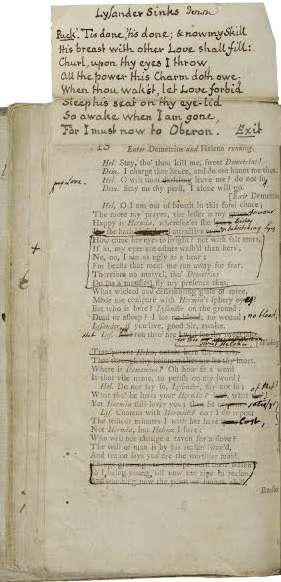 Lysander Sinks Down
Puck. 'Tis done, 'tis done; & now my Skill
His breast with other Love shall fill:
Churl, upon thy eyes I throw
All the power this Charm doth owe.
When thou wak'st, let Love forbid
Sleep his seat on thy eye-lid
So awake when I am gone,
For I must now to Oberon. Exit
Enter Demetrius and Helena running.
Hel. Stay, tho' thou kill me, sweet Demetrius!
Dem. I charge thee hence, and do not haunt me thus.
Hel. O wilt thou darkling leave me? do not so.
Dem. Stay on thy peril, I alone will go.
[Exit Demetrius
Hel. O I am out of breath in this fond chace;
The more my prayer, the lesser is my
Happy is Hermia, wheresoe'er she
she hath attractive bewitching Eyes
How came her eyes so bright? not with salt tears,
If so, my eyes are oftner wash'd than hers,
No, no, I am as ugly as a bear;
For beasts that meet me run away for fear.
Therefore no marvel, tho' Demetrius
Do (as a monster) fly my presence thus.
What wicked and dissembling glass of mine
Made me compare with Hermia's sphery eyes
But who is here? Lysander on the ground;
Dead or asleep? I see no blood, no wound; no blood,
Lysander, if you live, good Sir, awake.
Lys. run thro' fire
Helena
That through thy bosom makes me see thy heart.
Where is Demetrius? Oh how fit a word
Is that vile name, to perish on my sword?
Hel. Do not say so, Lysander, say not so;
What tho' he loves your Hermia? what
Yet Hermia still loves you; then be
Lys. Content with Hermia? no: I do repent
The tedious minutes I with her have
Not Hermia, but Helena I love:
Who will not change a raven for a dove?
The will of man is by his reason sway'd,
And reason says you are the worthier maid.
So I, being young, till now not ripe to reason;